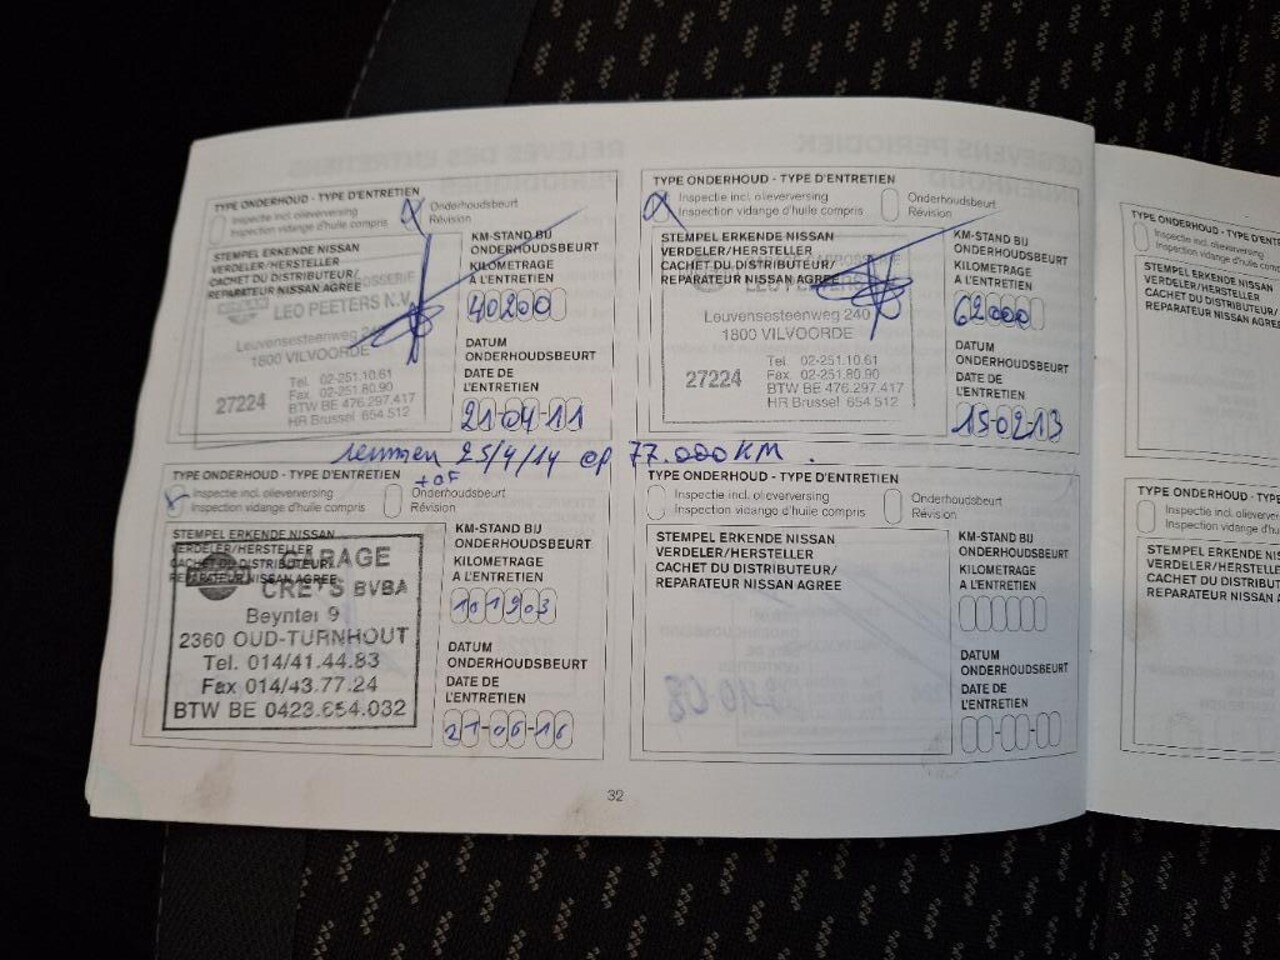 TYPE ONDERHOUD - TYPE D'ENTRETIEN
Inspectie incl. olieverversing
Inspection vidange d'huile compris
X Onderhoudsbeurt
Révision
STEMPEL ERKENDE NISSAN
VERDELER/HERSTELLER
CACHET DU DISTRIBUTEUR/
REPARATEUR NISSAN AGREE
CARROSSERIE
LEO PEETERS N.V.
Leuvensesteenweg 240
1800 VILVOORDE
Tel. 02-251.10.61
Fax. 02-251.80.90
27224
BTW BE 476.297.417
HR Brussel 654.512
KM-STAND BIJ
ONDERHOUDSBEURT
KILOMETRAGE
A L'ENTRETIEN
40200
DATUM
ONDERHOUDSBEURT
DATE DE
L'ENTRETIEN
21-04-11
TYPE ONDERHOUD - TYPE D'ENTRETIEN
X Inspectie incl. olieverversing
Inspection vidange d'huile compris
Onderhoudsbeurt
Révision
STEMPEL ERKENDE NISSAN
VERDELER/HERSTELLER
CACHET DU DISTRIBUTEUR/
REPARATEUR NISSAN AGREE
Leuvensesteenweg 240
1800 VILVOORDE
Tel. 02-251.10.61
27224
Fax. 02-251.80.90
BTW BE 476.297.417
HR Brussel 654.512
KM-STAND BIJ
ONDERHOUDSBEURT
KILOMETRAGE
A L'ENTRETIEN
62000
DATUM
ONDERHOUDSBEURT
DATE DE
L'ENTRETIEN
15-02-13
remmen 25/4/14 op 77.000 KM.
TYPE ONDERHOUD - TYPE D'ENTRETIEN
+ OF
Inspectie incl. olieverversing
Inspection vidange d'huile compris
Onderhoudsbeurt
Révision
STEMPEL ERKENDE NISSAN
VERDELER/HERSTELLER
CACHET DU DISTRIBUTEUR/
REPARATEUR NISSAN AGREE
GARAGE
CREYS BVBA
Beynter 9
2360 OUD-TURNHOUT
Tel. 014/41.44.83
Fax 014/43.77.24
BTW BE 0423.654.032
KM-STAND BIJ
ONDERHOUDSBEURT
KILOMETRAGE
A L'ENTRETIEN
101903
DATUM
ONDERHOUDSBEURT
DATE DE
L'ENTRETIEN
21-06-16
TYPE ONDERHOUD - TYPE D'ENTRETIEN
Inspectie incl. olieverversing
Inspection vidange d'huile compris
Onderhoudsbeurt
Révision
STEMPEL ERKENDE NISSAN
VERDELER/HERSTELLER
CACHET DU DISTRIBUTEUR/
REPARATEUR NISSAN AGREE
KM-STAND BIJ
ONDERHOUDSBEURT
KILOMETRAGE
A L'ENTRETIEN
DATUM
ONDERHOUDSBEURT
DATE DE
L'ENTRETIEN
32
TYPE ONDERHOUD - TYPE D'ENTR
Inspectie incl. olieverversing
Inspection vidange d'huile
STEMPEL ERKENDE NISSAN
VERDELER/HERSTELLER
CACHET DU DISTRIBUTEUR/
REPARATEUR NISSAN AGREE
TYPE ONDERHOUD - TYPE
Inspectie incl. olieverver
Inspection vidange d'hui
STEMPEL ERKENDE NIS
VERDELER/HERSTELLER
CACHET DU DISTRIBUT
REPARATEUR NISSAN A